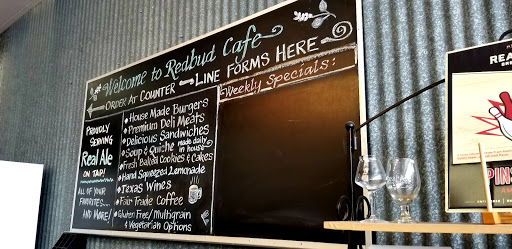 Welcome to Redbud Cafe
Order At Counter
Line Forms Here
Weekly Specials:
Proudly
Serving
Real Ale
on Tap!
All of your
Favorites....
and More!
House Made Burgers
Premium Deli Meats
Delicious Sandwiches
Soup & Quiche made daily in house
Fresh Baked Cookies & Cakes
Hand Squeezed Lemonade
Texas Wines
Fair Trade Coffee
Gluten Free/Multigrain
& Vegetarian Options
REA
PINS